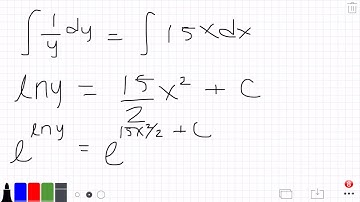 ∫ 1/y dy = ∫ 15x dx
ln y = 15/2 x² + C
e^(ln y) = e^(15x²/2 + C)